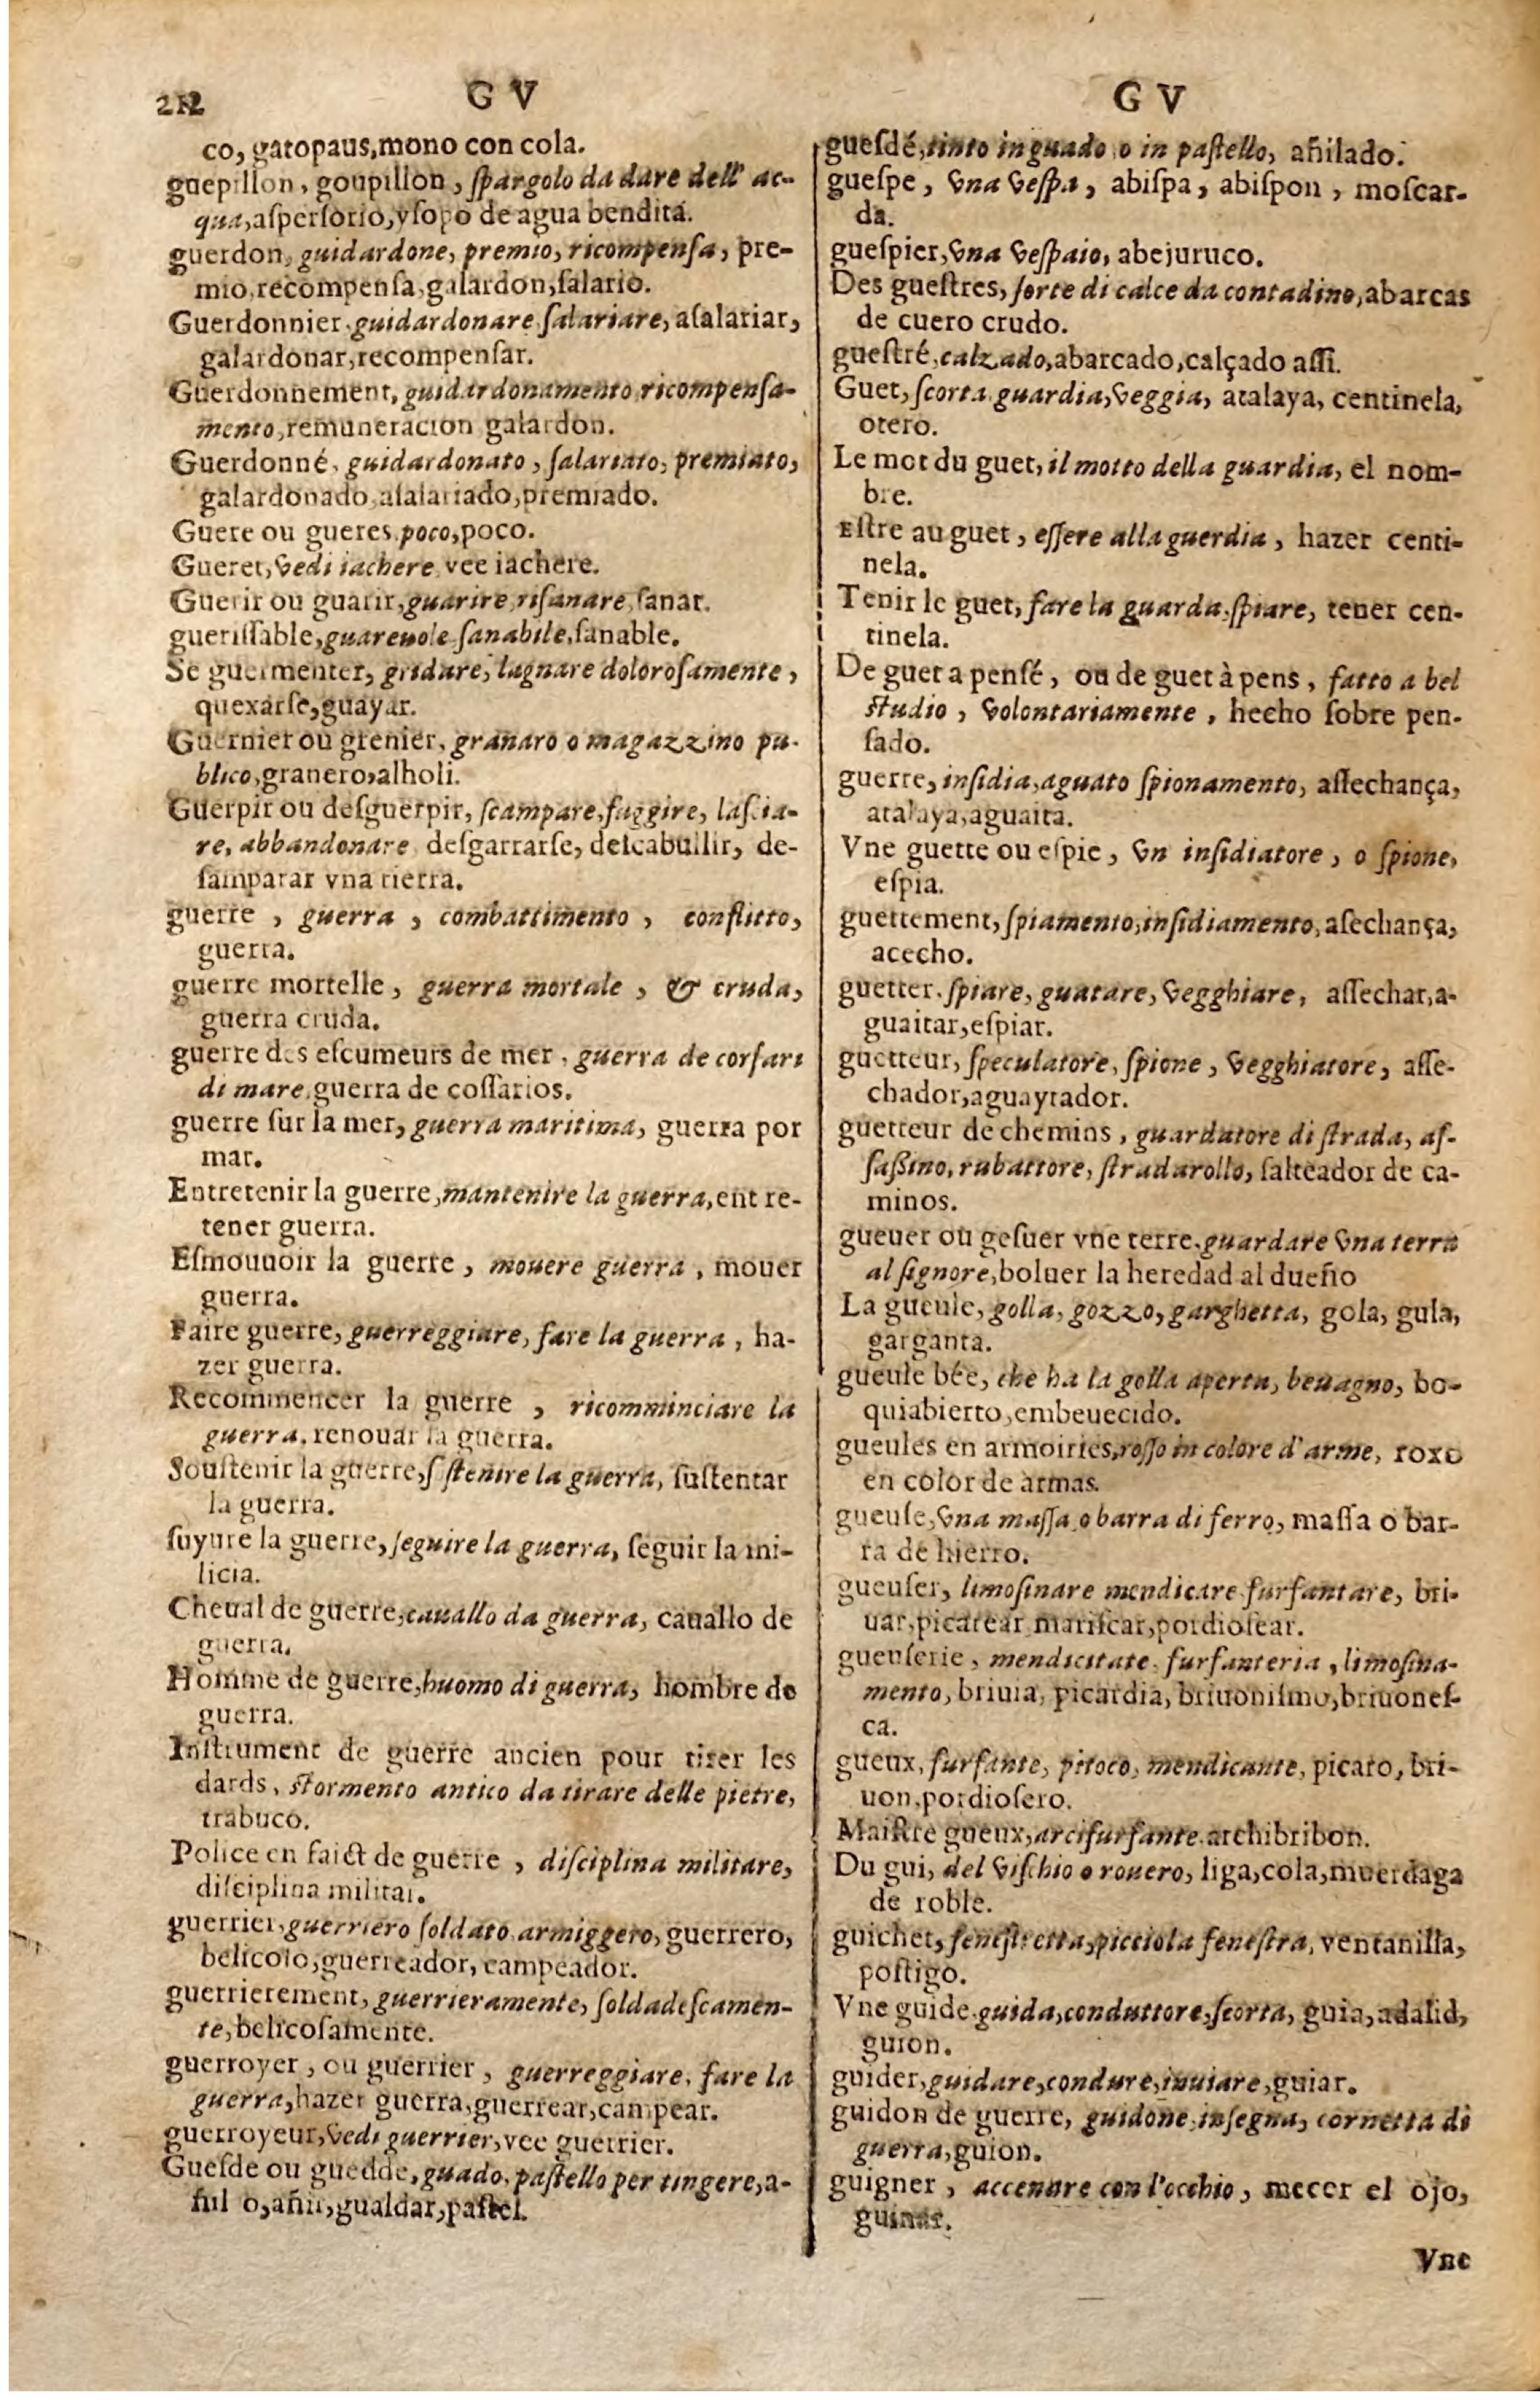 212 G V
co, gatopaus, mono con cola.
guepillon, goupillon, ſpargolo da dare dell' ac-
qua, aſperſorio, yſopo de agua bendita.
guerdon, guidardone, premio, ricompenſa, pre-
mio, recompenſa, galardon, ſalario.
Guerdonnier, guidardonare ſalariare, aſalariar,
galardonar, recompenſar.
Guerdonnement, guidardonamento ricompenſa-
mento, remuneracion galardon.
Guerdonné, guidardonato, ſalariato, premiato,
galardonado, aſalariado, premiado.
Guere ou gueres, poco, poco.
Gueret, vedi iachere, vee iachere.
Guerir ou guarir, guarire, riſanare, ſanar.
gueriſſable, guareuole ſanabile, ſanable.
Se guermenter, gridare, lagnare doloroſamente,
quexarſe, guayar.
Guernier ou grenier, granaro o magazzino pu-
blico, granero, alholi.
Guerpir ou deſguerpir, ſcampare, fuggire, laſcia-
re, abbandonare deſgarrarſe, deſcabullir, de-
ſamparar vna tierra.
guerre, guerra, combattimento, conflitto,
guerra.
guerre mortelle, guerra mortale, & cruda,
guerra cruda.
guerre des eſcumeurs de mer, guerra de corſari
di mare, guerra de coſſarios.
guerre ſur la mer, guerra maritima, guerra por
mar.
Entretenir la guerre, mantenire la guerra, entre-
tener guerra.
Eſmouuoir la guerre, mouere guerra, mouer
guerra.
Faire guerre, guerreggiare, fare la guerra, ha-
zer guerra.
Recommencer la guerre, ricomminciare la
guerra, renouar la guerra.
Souſtenir la guerre, ſoſtenire la guerra, ſuſtentar
la guerra.
ſuyure la guerre, ſeguire la guerra, ſeguir la mi-
licia.
Cheual de guerre, cauallo da guerra, cauallo de
guerra.
Homme de guerre, huomo di guerra, hombre de
guerra.
Inſtrument de guerre ancien pour tirer les
dards, ſtormento antico da tirare delle pietre,
trabuco.
Police en faict de guerre, diſciplina militare,
diſciplina militar.
guerrier, guerriero ſoldato armiggero, guerrero,
belicoſo, guerreador, campeador.
guerrierement, guerrieramente, ſoldadeſcamen-
te, belicoſamente.
guerroyer, ou guerrier, guerreggiare, fare la
guerra, hazer guerra, guerrear, campear.
guerroyeur, vedi guerrier, vee guerrier.
Gueſde ou guedde, guado, paſtello per tingere, a-
ñil o, añir, gualdar, paſtel.
G V
gueſdé, tinto in guado o in paſtello, añilado.
gueſpe, vna veſpa, abiſpa, abiſpon, moſcar-
da.
gueſpier, vna veſpaio, abejuruco.
Des gueſtres, ſorte di calce da contadino, abarcas
de cuero crudo.
gueſtré, calzado, abarcado, calçado aſſi.
Guet, ſcorta guardia, veggia, atalaya, centinela,
otero.
Le mot du guet, il motto della guardia, el nom-
bre.
Eſtre au guet, eſſere alla guerdia, hazer centi-
nela.
Tenir le guet, fare la guarda, ſpiare, tener cen-
tinela.
De guet a penſé, ou de guet à pens, fatto a bel
ſtudio, volontariamente, hecho ſobre pen-
ſado.
guerre, inſidia, aguato ſpionamento, aſſechança,
atalaya, aguaita.
Vne guette ou eſpie, vn inſidiatore, o ſpione,
eſpia.
guettement, ſpiamento, inſidiamento, aſechança,
acecho.
guetter, ſpiare, guatare, vegghiare, aſſechar, a-
guaitar, eſpiar.
guetteur, ſpeculatore, ſpione, vegghiatore, aſſe-
chador, aguaytador.
guetteur de chemins, guardatore di ſtrada, aſ-
ſaßino, rubattore, ſtradarollo, ſalteador de ca-
minos.
gueuer ou geſuer vne terre, guardare vna terra
al ſignore, boluer la heredad al dueño
La gueule, golla, gozzo, garghetta, gola, gula,
garganta.
gueule bée, che ha la golla aperta, beuagno, bo-
quiabierto, embeuecido.
gueules en armoiries, roſſo in colore d'arme, roxo
en color de armas.
gueuſe, vna maſſa o barra di ferro, maſſa o bar-
ra de hierro.
gueuſer, limoſinare mendicare furfantare, bri-
uar, picarear mariſcar, pordioſear.
gueuſerie, mendicitate, furfanteria, limoſina-
mento, briuia, picardia, briuoniſmo, briuoneſ-
ca.
gueux, furfante, pitoco, mendicante, picaro, bri-
uon, pordioſero.
Maiſtre gueux, arcifurfante, archibribon.
Du gui, del viſchio o rouero, liga, cola, muerdaga
de roble.
guichet, feneſtretta, picciola feneſtra, ventanilla,
poſtigo.
Vne guide, guida, conduttore, ſcorta, guia, adalid,
guion.
guider, guidare, condure, inuiare, guiar.
guidon de guerre, guidone, inſegna, cornetta di
guerra, guion.
guigner, accenare con l'occhio, mecer el ojo,
guinar.
Vne